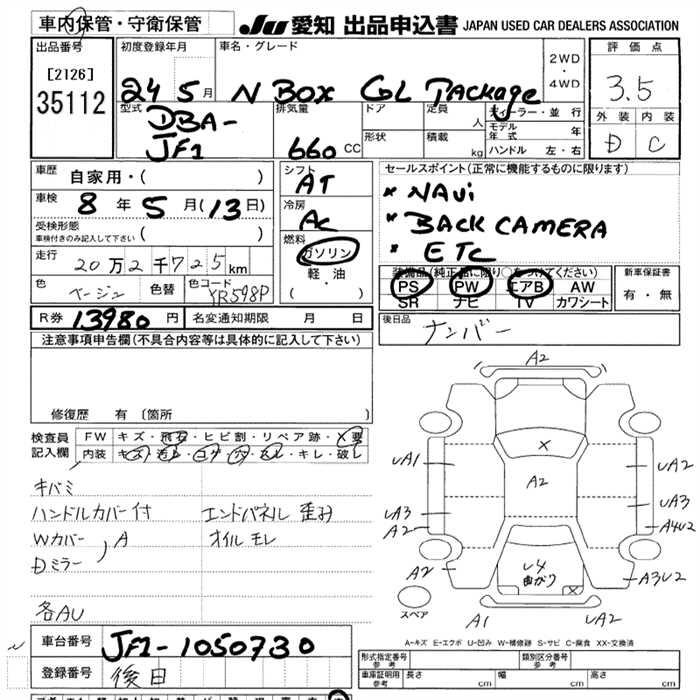 車内保管・守衛保管
JU 愛知 出品申込書 JAPAN USED CAR DEALERS ASSOCIATION
出品番号
[2126]
35112
初度登録年月
24 5 月
車名・グレード
N BOX GL Package
2WD
・
4WD
評価点
3.5
外装 内装
D C
型式
DBA-
JF1
排気量
660 CC
ドア
形状
定員
人
積載
kg
ディーラー・並行
モデル年式 年
ハンドル 左・右
車歴
自家用・( )
車検
8 年 5 月(13日)
受検形態
車検付きのみ記入して下さい ( )
走行
20万2千725km
色
ベージュ
色替
色コード
YR598P
シフト
AT
冷房
AC
燃料
ガソリン
軽・油
( )
セールスポイント(正常に機能するものに限ります)
* NAVi
* BACK CAMERA
* ETC
装備品(純正品に限り○をつけてください)
PS PW エアB AW
SR ナビ TV カワシート
新車保証書
有・無
R券 13980 円
名変通知期限 月 日
後日品
ナンバー
注意事項申告欄(不具合内容等は具体的に記入して下さい)
修復歴 有 〔箇所 〕
検査員
記入欄
FW キズ・飛石・ヒビ割・リペア跡・X要
内装 キズ・汚レ・コゲ・穴・スレ・キレ・破レ
キバミ
ハンドルカバー付
Wカバー
Dミラー
A
各AU
エンドパネル 歪み
オイルモレ
A2
UA1
UA3
A2
A2
X
A2
U4
曲がり
X
UA2
UA3
A4U2
A3U2
スペア
A1
UA2
A-キズ E-エクボ U-凹み W-補修跡 S-サビ C-腐食 XX-交換済
車台番号
JF1-1050730
登録番号
後日
形式指定番号
参考
類別区分番号
参考
車庫証明用
参考
長さ cm
幅 cm
高さ cm